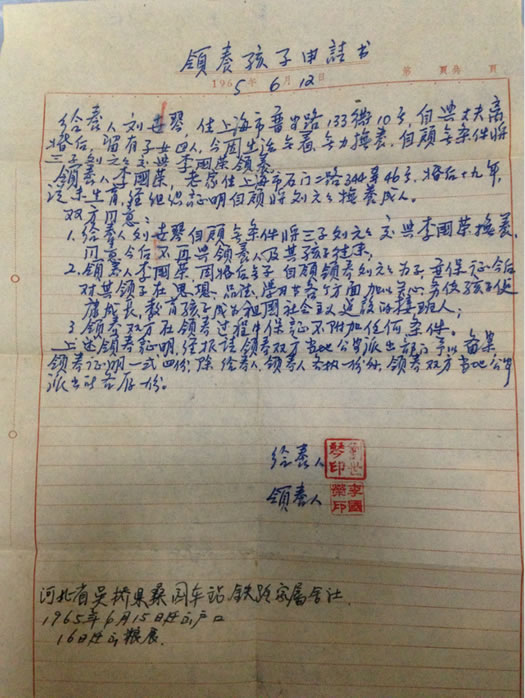 領养孩子申請书
1965年6月12日 第 頁共 頁
给养人刘世琴,住上海市普安路133衖10号,自與丈夫离
婚后,留有子女四人,今因生活负着无力撫养,自願无条件将
三子刘元元交與李國荣領养。
領养人李國荣,老家住上海市石门二路344弄46号,婚后十九年,
没未生育,経组织証明自願将刘元元撫养成人。
双方同意:
1.给养人刘世琴自願无条件将三子刘元元交與李國荣撫养,
同意今后不再與領养人及其孩子往来;
2.領养人李國荣,因婚后无子自願領养刘元元为子,並保证今后
对其領子在思想、品德、学习等各个方面加以关心,来使孩子健
康成长,教育孩子成为祖國社会主义建設的接班人;
3.領养双方在領养过程中保证不附加任何条件。
上述領养証明,経报請領养双方当地公安派出部门予以备案
領养证明一式四份,除给养人、領养人各执一份外,領养双方当地公安
派出所各存一份。
给养人
劉世琴印
領养人
李國荣印
河北省吴桥县桑园车站铁路家属宿社
1965年6月15日迁出户口
16日迁出粮食